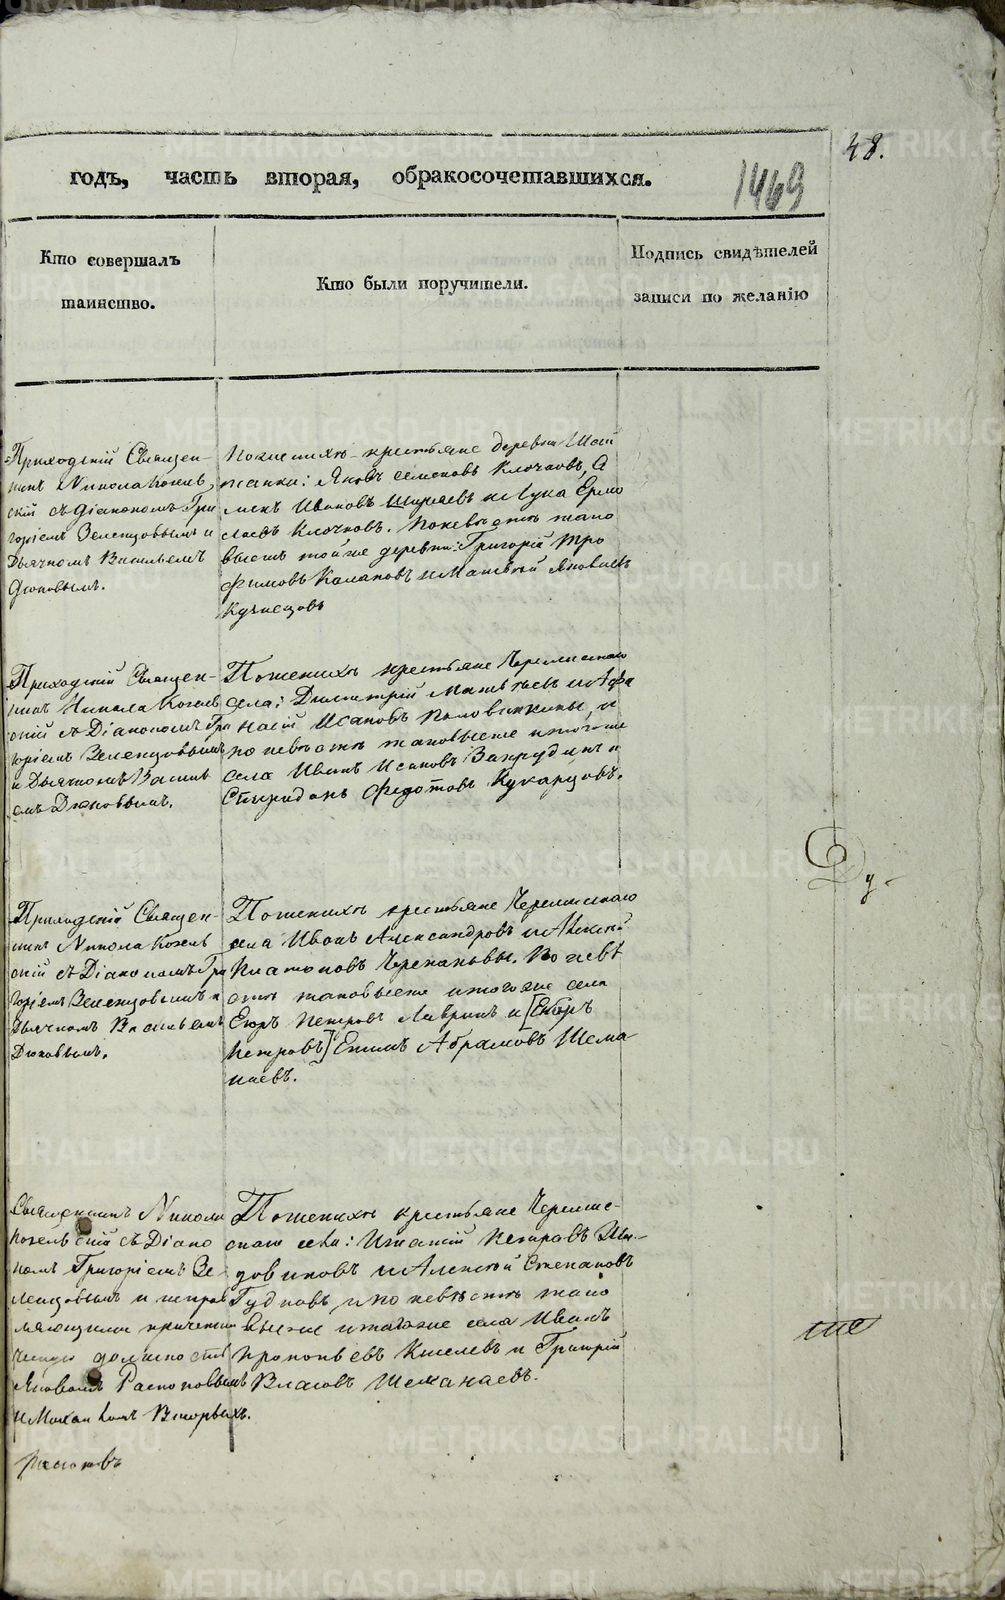 48.
годъ, часть вторая, обракосочетавшихся.
1469
Кто совершалъ
таинство.
Кто были поручители.
Подпись свидѣтелей
записи по желанію
Приходскій Священ-
никъ Никола Козель
скій съ діакономъ Гри
горіемъ Зеленцовымъ и
Дьячкомъ Васильемъ
Дюковымъ.
По женихѣ крестьяне деревни
Яковъ Семеновъ Клочковъ, А
Ивановъ Ширяевъ и Лука Ермо
лаевъ Клочковъ. По невѣстѣ тако
выеже той же деревни: Григорій Тро
фимовъ Калаповъ и Матвѣй Яковлевъ
Кузнецовъ
Приходскій Священ-
никъ Никола Козель
скій съ Діакономъ Гри
горіемъ Зеленцовымъ
и Дьячкомъ Василь
емъ Дюковымъ.
По женихѣ крестьяне Черемисскаго
села: Димитрій Матвѣевъ и Афа
насій Исаковъ Половинкины, и
по невѣстѣ таковыеже и тогоже
села Иванъ Исаковъ Запрудинъ и
Спиридонъ Федотовъ Кукарцовъ.
Приходскій Священ-
никъ Никола Козель
скій съ Діакономъ Гри
горіемъ Зеленцовымъ и
Дьячкомъ Васильемъ
Дюковымъ.
По женихѣ крестьяне Черемисскаго
села Иванъ Александровъ и Алексѣй
Платоновъ Черепановы. По невѣ
стѣ таковыеже и тогоже села
Егоръ Петровъ Лавринъ и [Егоръ
Петровъ] Ефимъ Абрамовъ Шема
наевъ.
Ду-
Священникъ Никола
Козельскій съ Діако
номъ Григоріемъ Зе
ленцовымъ и исправ
ляющими причетни
ческую должность
Яковомъ Распоповымъ
и Вторыхъ.
По женихѣ крестьяне Черемис-
скаго села: Игнатій Петровъ
довиковъ и Алексѣй Степановъ
Гудковъ, и по невѣстѣ тако
выеже и тогоже села Иванъ
Прокопьевъ Киселевъ и Григорій
Власовъ Шеманаевъ.